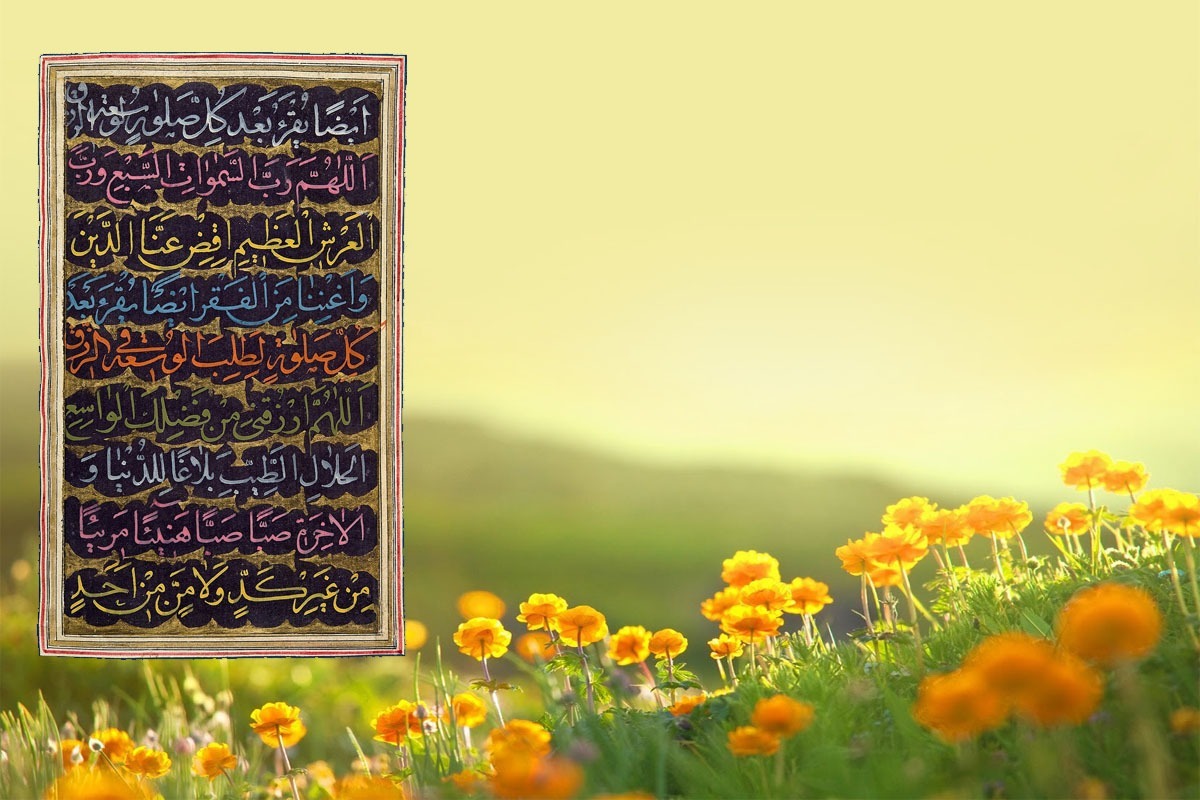 اَيضًا يُقْرَءُ بَعْدَ كُلِّ صَلٰوةٍ لِوُسْعَةِ الرِّزْقِ
اَللّٰهُمَّ رَبَّ السَّمٰوَاتِ السَّبْعِ وَرَبَّ
الْعَرْشِ الْعَظِيْمِ اِقْضِ عَنَّا الدَّيْنَ
وَاَغْنِنَا مِنَ الْفَقْرِ ايْضًا يُقْرَءُ بَعْدَ
كُلِّ صَلٰوةٍ لِطَلَبِ الوُسْعَةِ فِى الرِّزْقِ
اَللّٰهُمَّ ارْزُقْنِىْ مِنْ فَضْلِكَ الْوَاسِعِ
الْحَلَالِ الطَّيِّبِ بَلَاغًا لِلدُّنْيَا وَ
الْاٰخِرَةِ صَبًّا صَبًّا هَنِيْئًا مَرِيْئًا
مِنْ غَيْرِ كَدٍّ وَلَا مَنٍّ مِنْ اَحَدٍ